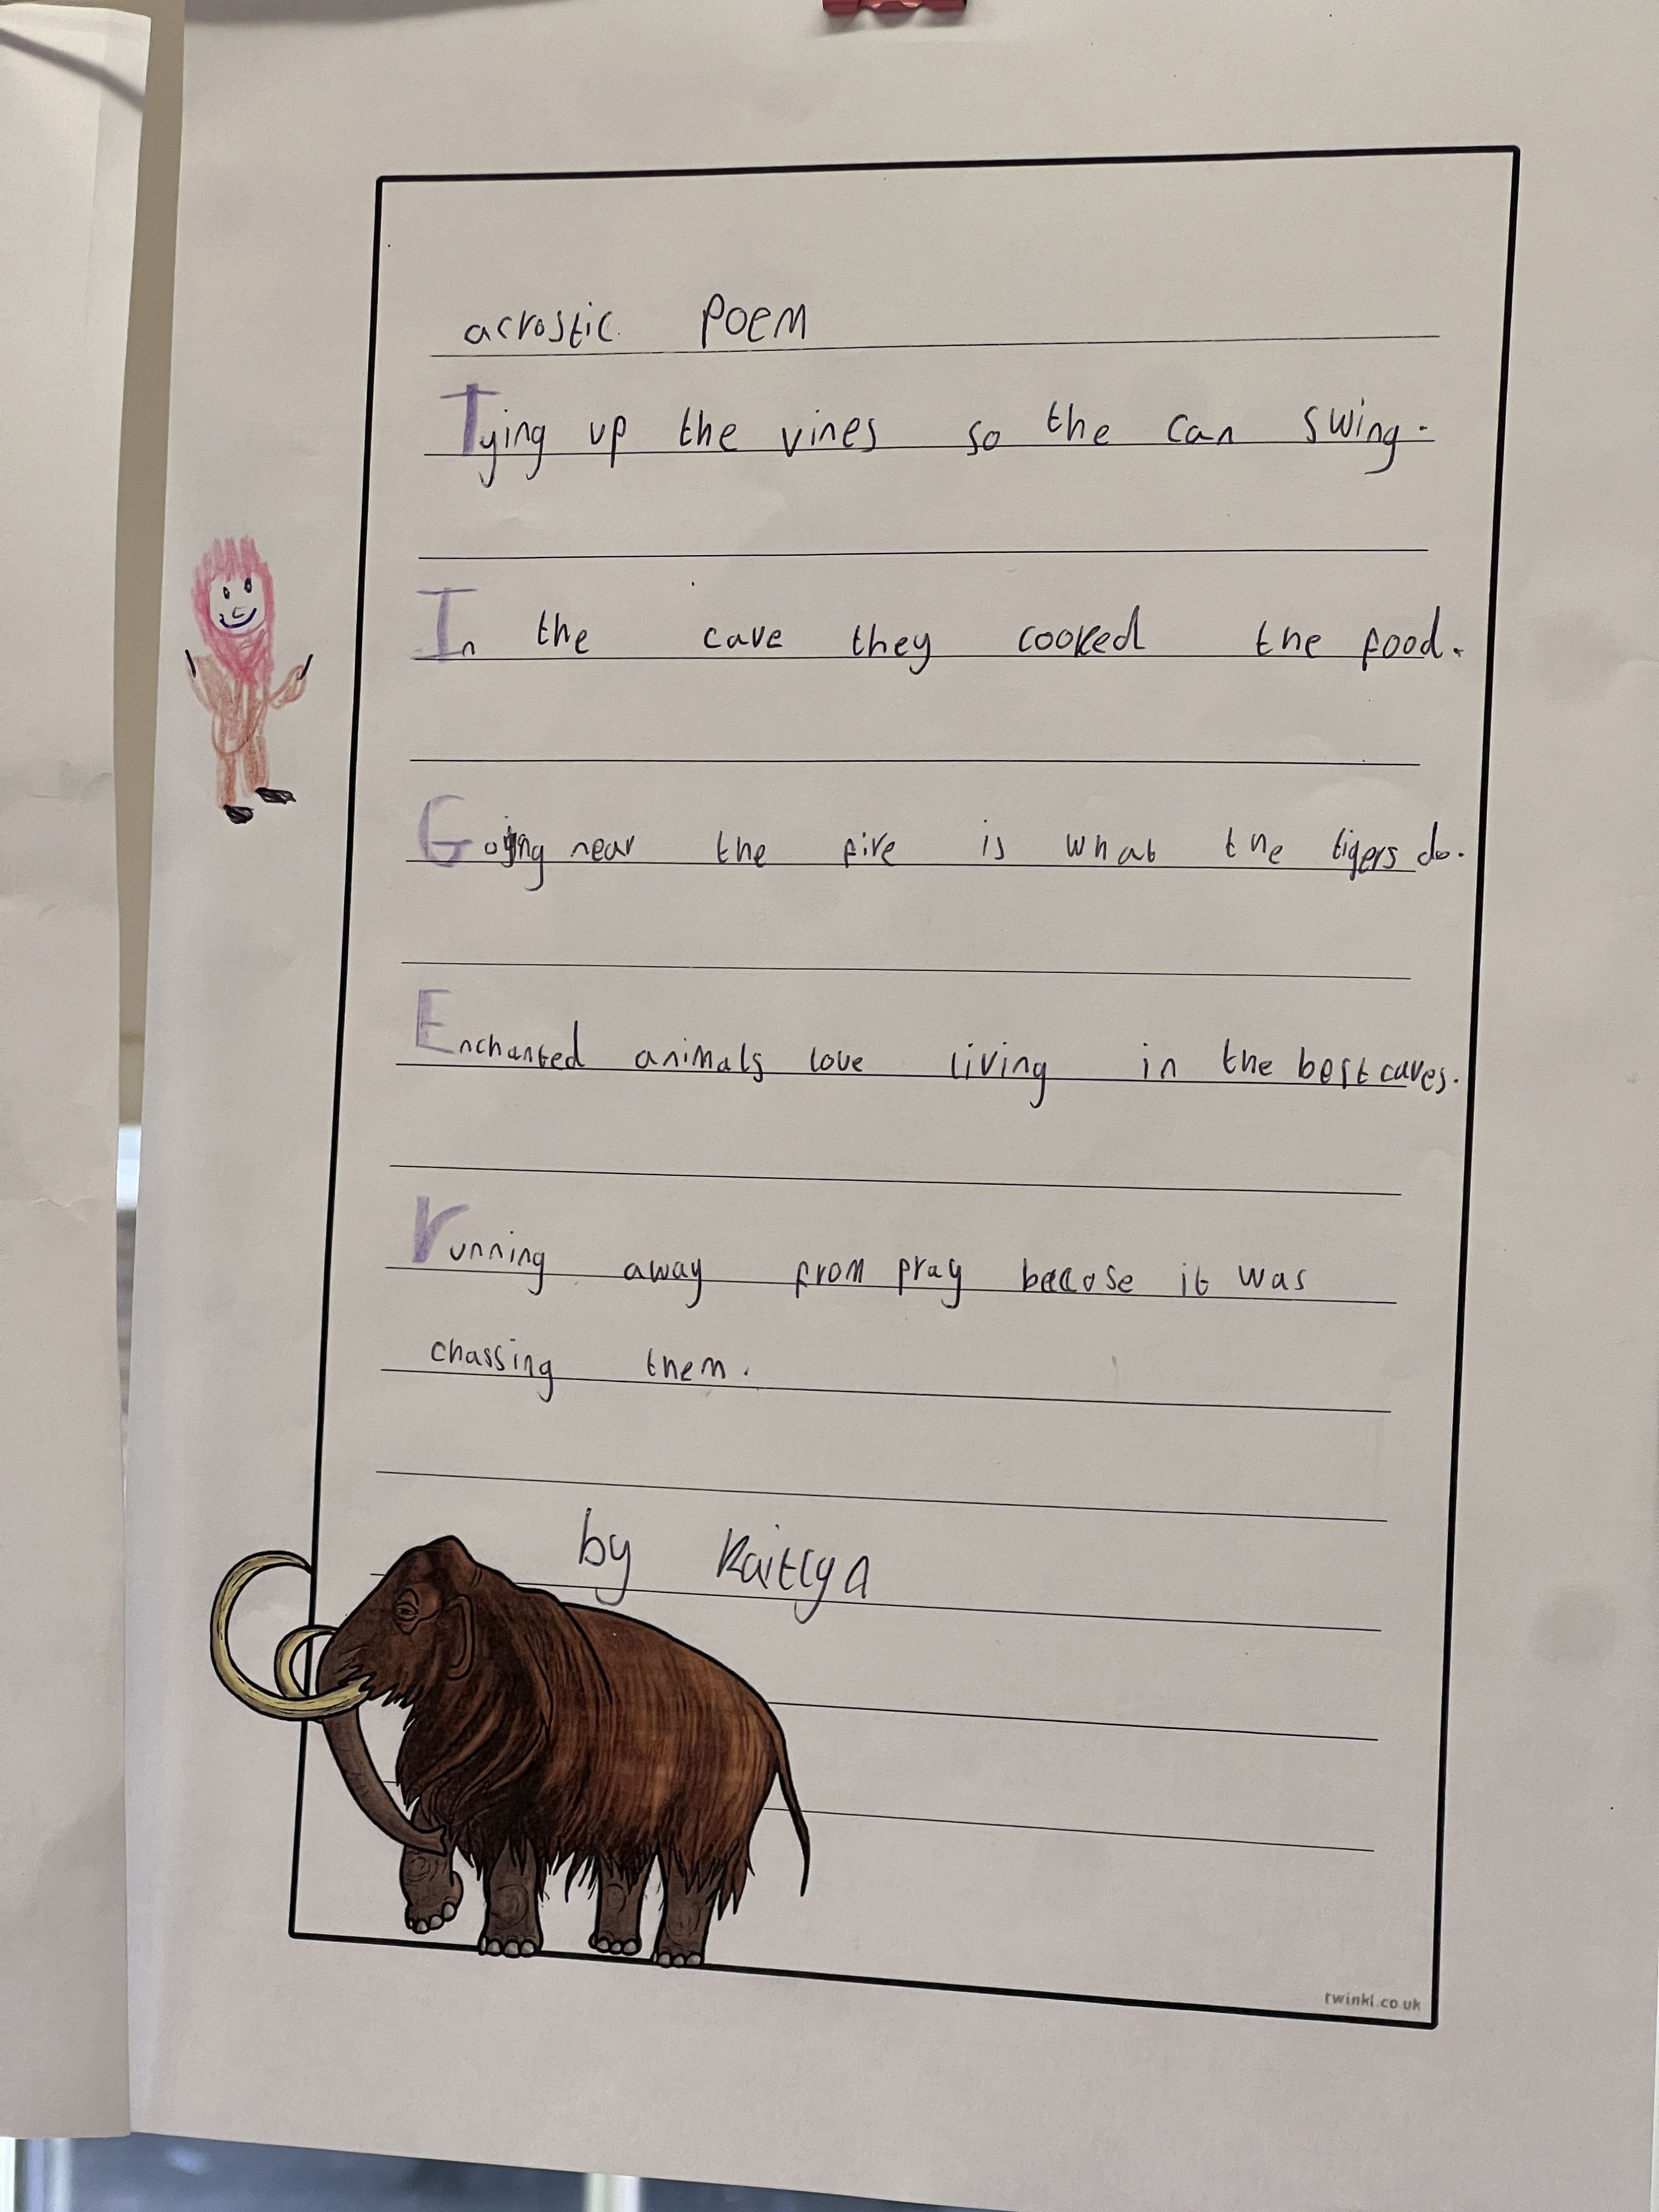 acrostic Poem
Tying up the vines so the can swing.
In the cave they cooked the food.
Going near the fire is what the tigers do.
Enchanted animals love living in the best caves.
running away from pray becose it was
chassing them.
by Kaitlyn
twinkl.co.uk